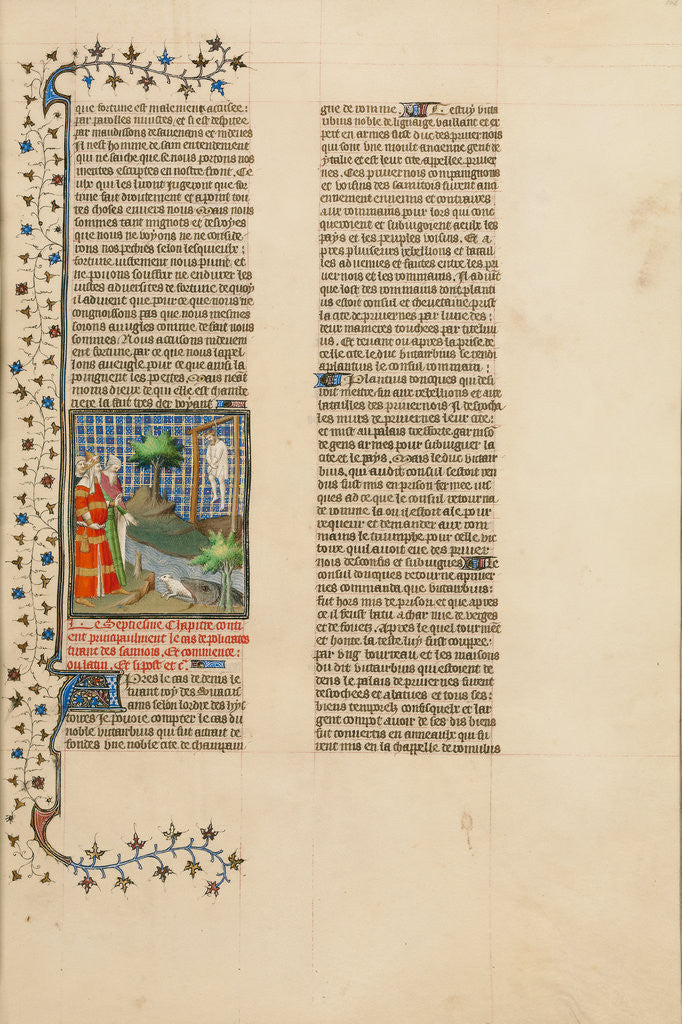 que fortune est malement accusee:
par parolles iniustes, et si est despitee
par maudissons desauenans et indeues
Il nest homme de sain entendement
qui ne saiche que se nous portions nos
mentes escriptes en nostre front. Ce
ulx qui les liront iugeront que for
tune fait droitement et a point tou
tes choses enuers nous Mais nous
sommes tant mignots et desuoyes
que nous ne voyons ne ne conside
rons nos pechies selon lesquieulx:
fortune iustement nous punit et
ne pouons souffrir ne endurer les
iustes aduersites de fortune. de quoy
il aduient que pource que nous ne
congnoissons pas que nous mesmes
soions aueugles comme de fait nous
sommes. Nous accusons indeuem
ent fortune par ce que nous lappel
lons aueugle pour ce que ainsi la
poingnent les poetes. Mais neant
moins dieux de qui elle est chambe
riere la fait tres cler voyant
Le Septiesme Chapitre conti
ent principaulment le cas de policrates
tirant des samois. Et commence:
ou latin. Et si post et cetera.
Apres le cas de denis le
tirant roy des Siracus
ains selon lordre des hys
toires Je pouoie compter le cas du
noble vitrubius qui fut attrait de
fondes vne noble cite de champai
gne de romme. Cestuy vitru
uibius noble de lignaige vaillant et ex
pert en armes fut duc des priuernois
qui sont vne moult ancienne gent de
ytalie et est leur cite appellee priuer
nes. Ces priuernois compaingnons
et voisins des samnitois furent anci
ennement ennemis et contraires
aux rommains pour lors qui conq
queroient et subiugoient a eulx les
pays et les peuples voisins. Et a
pres plusieurs rebellions et batail
les aduenues et faites entre les pri
uernois et les rommains. Il aduint
que lost des rommains dont planti
us estoit consul et cheuetaine prist
la cite de priuernes par lune des:
deux manieres touchees par titusliui
us. Et deuant ou apres la prise de
celle cite le duc vitruibius se rendi
a plantius le consul rommain:
Plantius doncques qui desi
roit mettre fin aux rebellions et aux
batailles des priuernois Il despecha
les murs de priuernes leur cite:
et mist au palais tresforte garniso
de gens armes pour subiuguer la
cite et le pays. Mais le duc vitrui
bius, qui audit consul sestoit ren
dus fust mis en prison fermee ius
ques ad ce que le consul retourna
de romme la ou il estoit ale pour
requerir et demander aux rom
mains le triumphe pour celle vic
toire quil auoit eue des priuer
nois desconfis et subiugues Le
consul doncques retourne a priuer
nes commanda que vitruibius:
fut hors mis de prison et que apres
ce il feust batu a char nue de verges
et de fouetz. Apres le quel tourment
et honte la teste luy fust couppee:
par vng bourreau et les maisons
du dit vitruibius qui estoient de
dens le palais de priuernes furent
despecies et abatues et tous ses:
biens temporelz confisquiez et lar
gent comptant auoir de ses dis biens
fut conuertis en anneaulx qui fu
rent mis en la chappelle de romulus